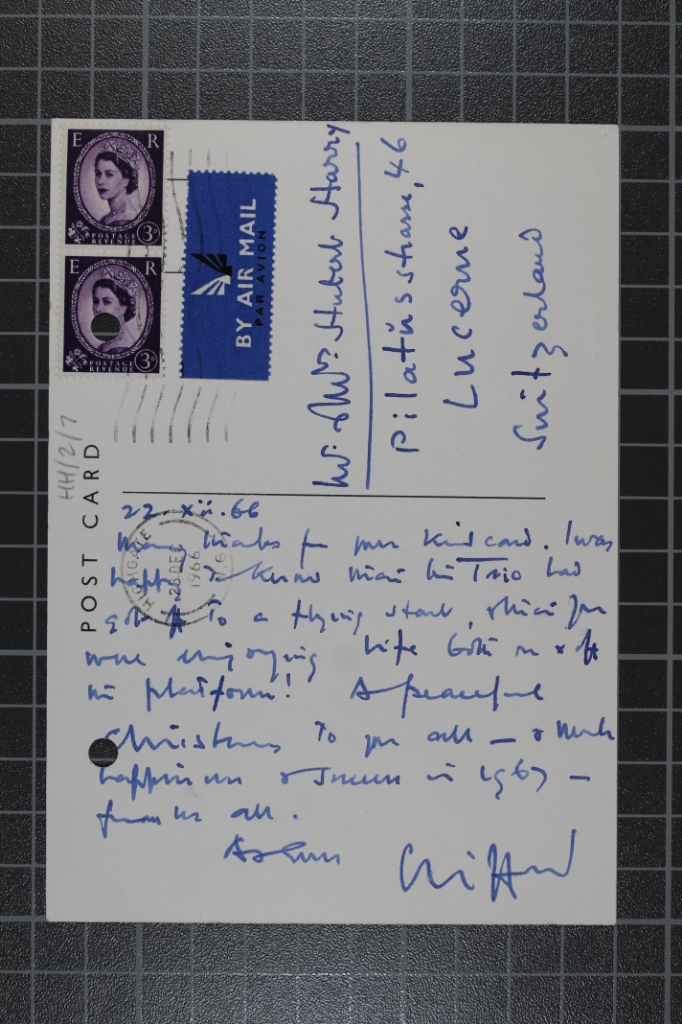 E R
POSTAGE
REVENUE
3D
E R
POSTAGE
REVENUE
3D
BY AIR MAIL
PAR AVION
HH/2/7
POST CARD
Mr. & Mrs. Hubert Harry
Pilatusstrasse, 46
Lucerne
Switzerland
HIGHGATE
DEC
1966
N.6
22.xii.66
Many thanks for your kind card. I was
happy to know that the Trio had
got to a flying start, & that you
were enjoying life both on & off
the platform! A peaceful
Christmas to you all — & much
happiness & success in 1967 —
from us all.
As ever
Clifford